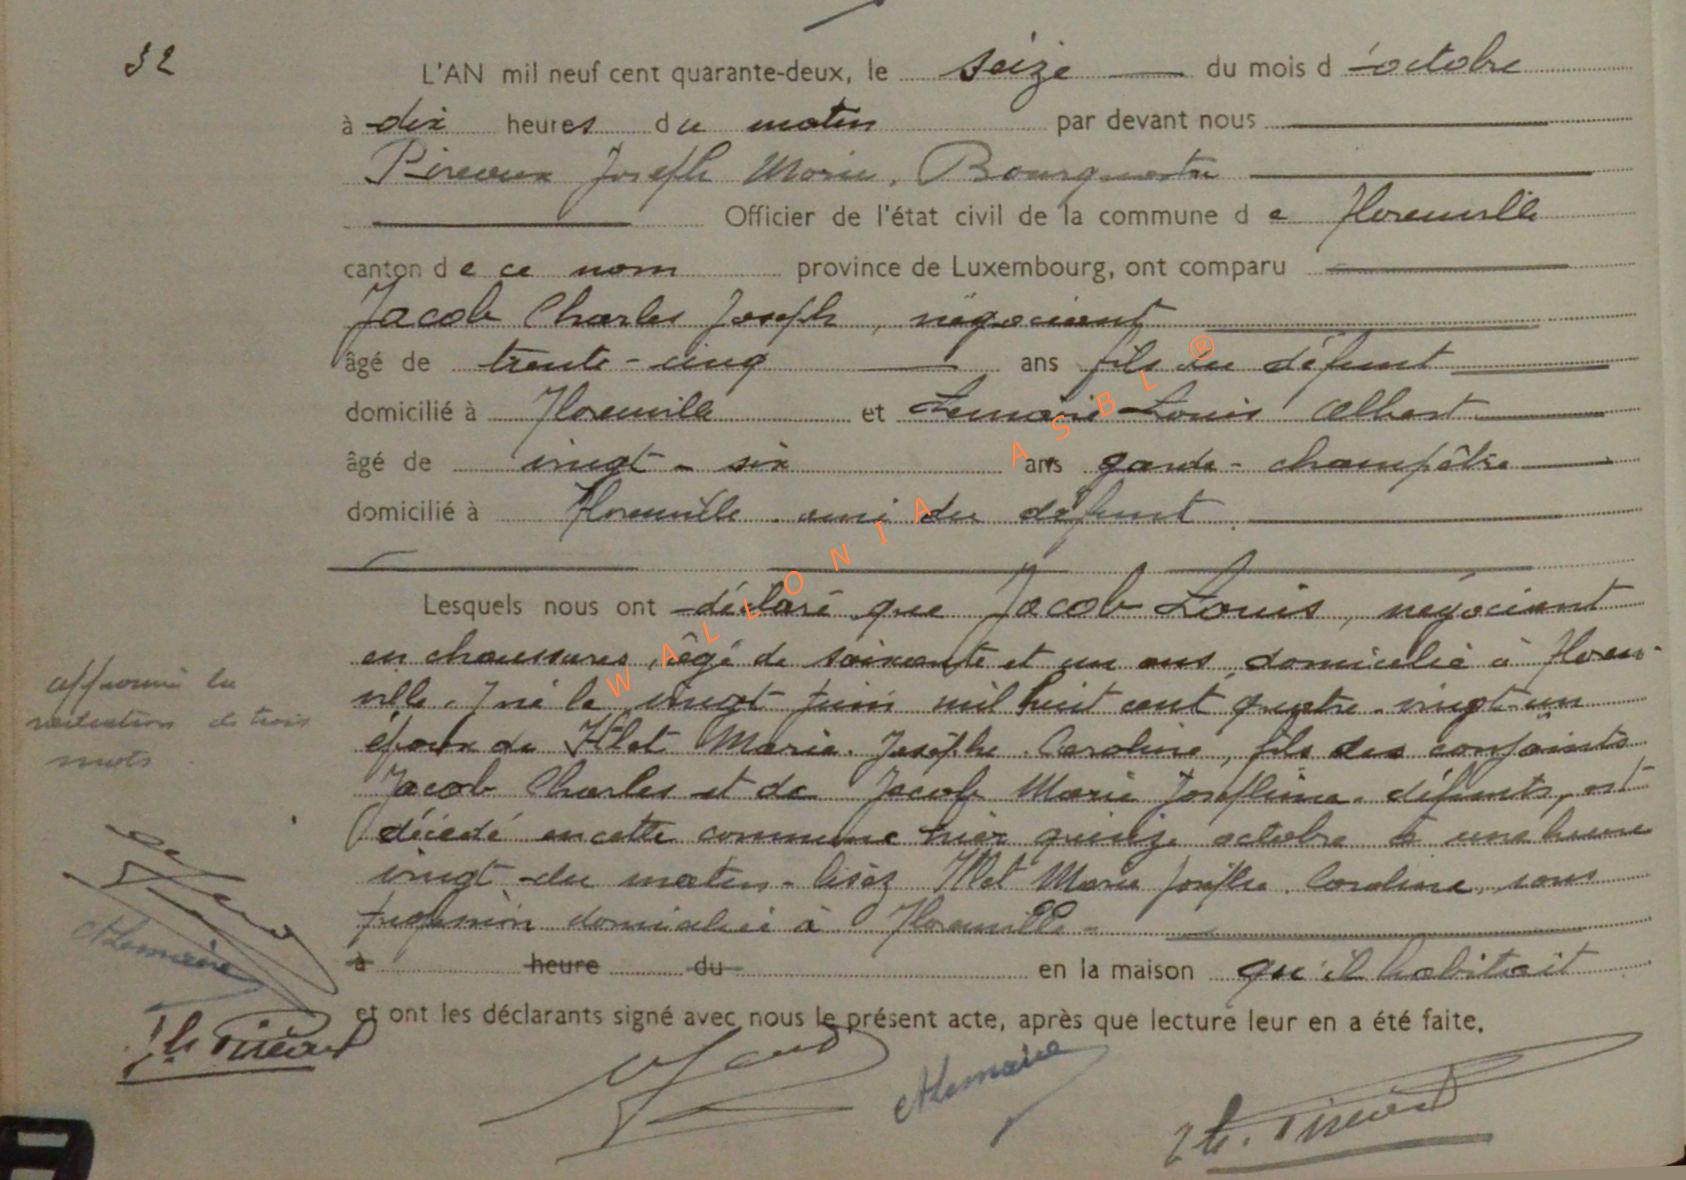 32
L'AN mil neuf cent quarante-deux, le seize du mois d'octobre
à dix heures du matin par devant nous
Joseph Marie, Bourgmestre
Officier de l'état civil de la commune de Florenville
canton de ce nom province de Luxembourg, ont comparu
Jacob Charles Joseph, négociant
âgé de trente-cinq ans fils du défunt
domicilié à Florenville et Lemaire Louis Albert
âgé de vingt-six ans garde-champêtre
domicilié à Florenville ami du défunt.
Lesquels nous ont déclaré que Jacob Louis, négociant
en chaussures, âgé de soixante et un ans, domicilié à Floren-
ville, né le vingt juin mil huit cent quatre-vingt-un
époux de Marie Josèphe Caroline, fils des conjoints
Jacob Charles et de Jacob Marie Joséphine, défunts, est
décédé en cette commune hier quinze octobre à une heure
vingt du matin - lisez Marie Josèphe Caroline, sans
profession domiciliée à Florenville -
à heure du en la maison qu'il habitait
et ont les déclarants signé avec nous le présent acte, après que lecture leur en a été faite.
approuvé la
de trois
mots
ALemaire
ALemaire
WALLONIA ASBL ®